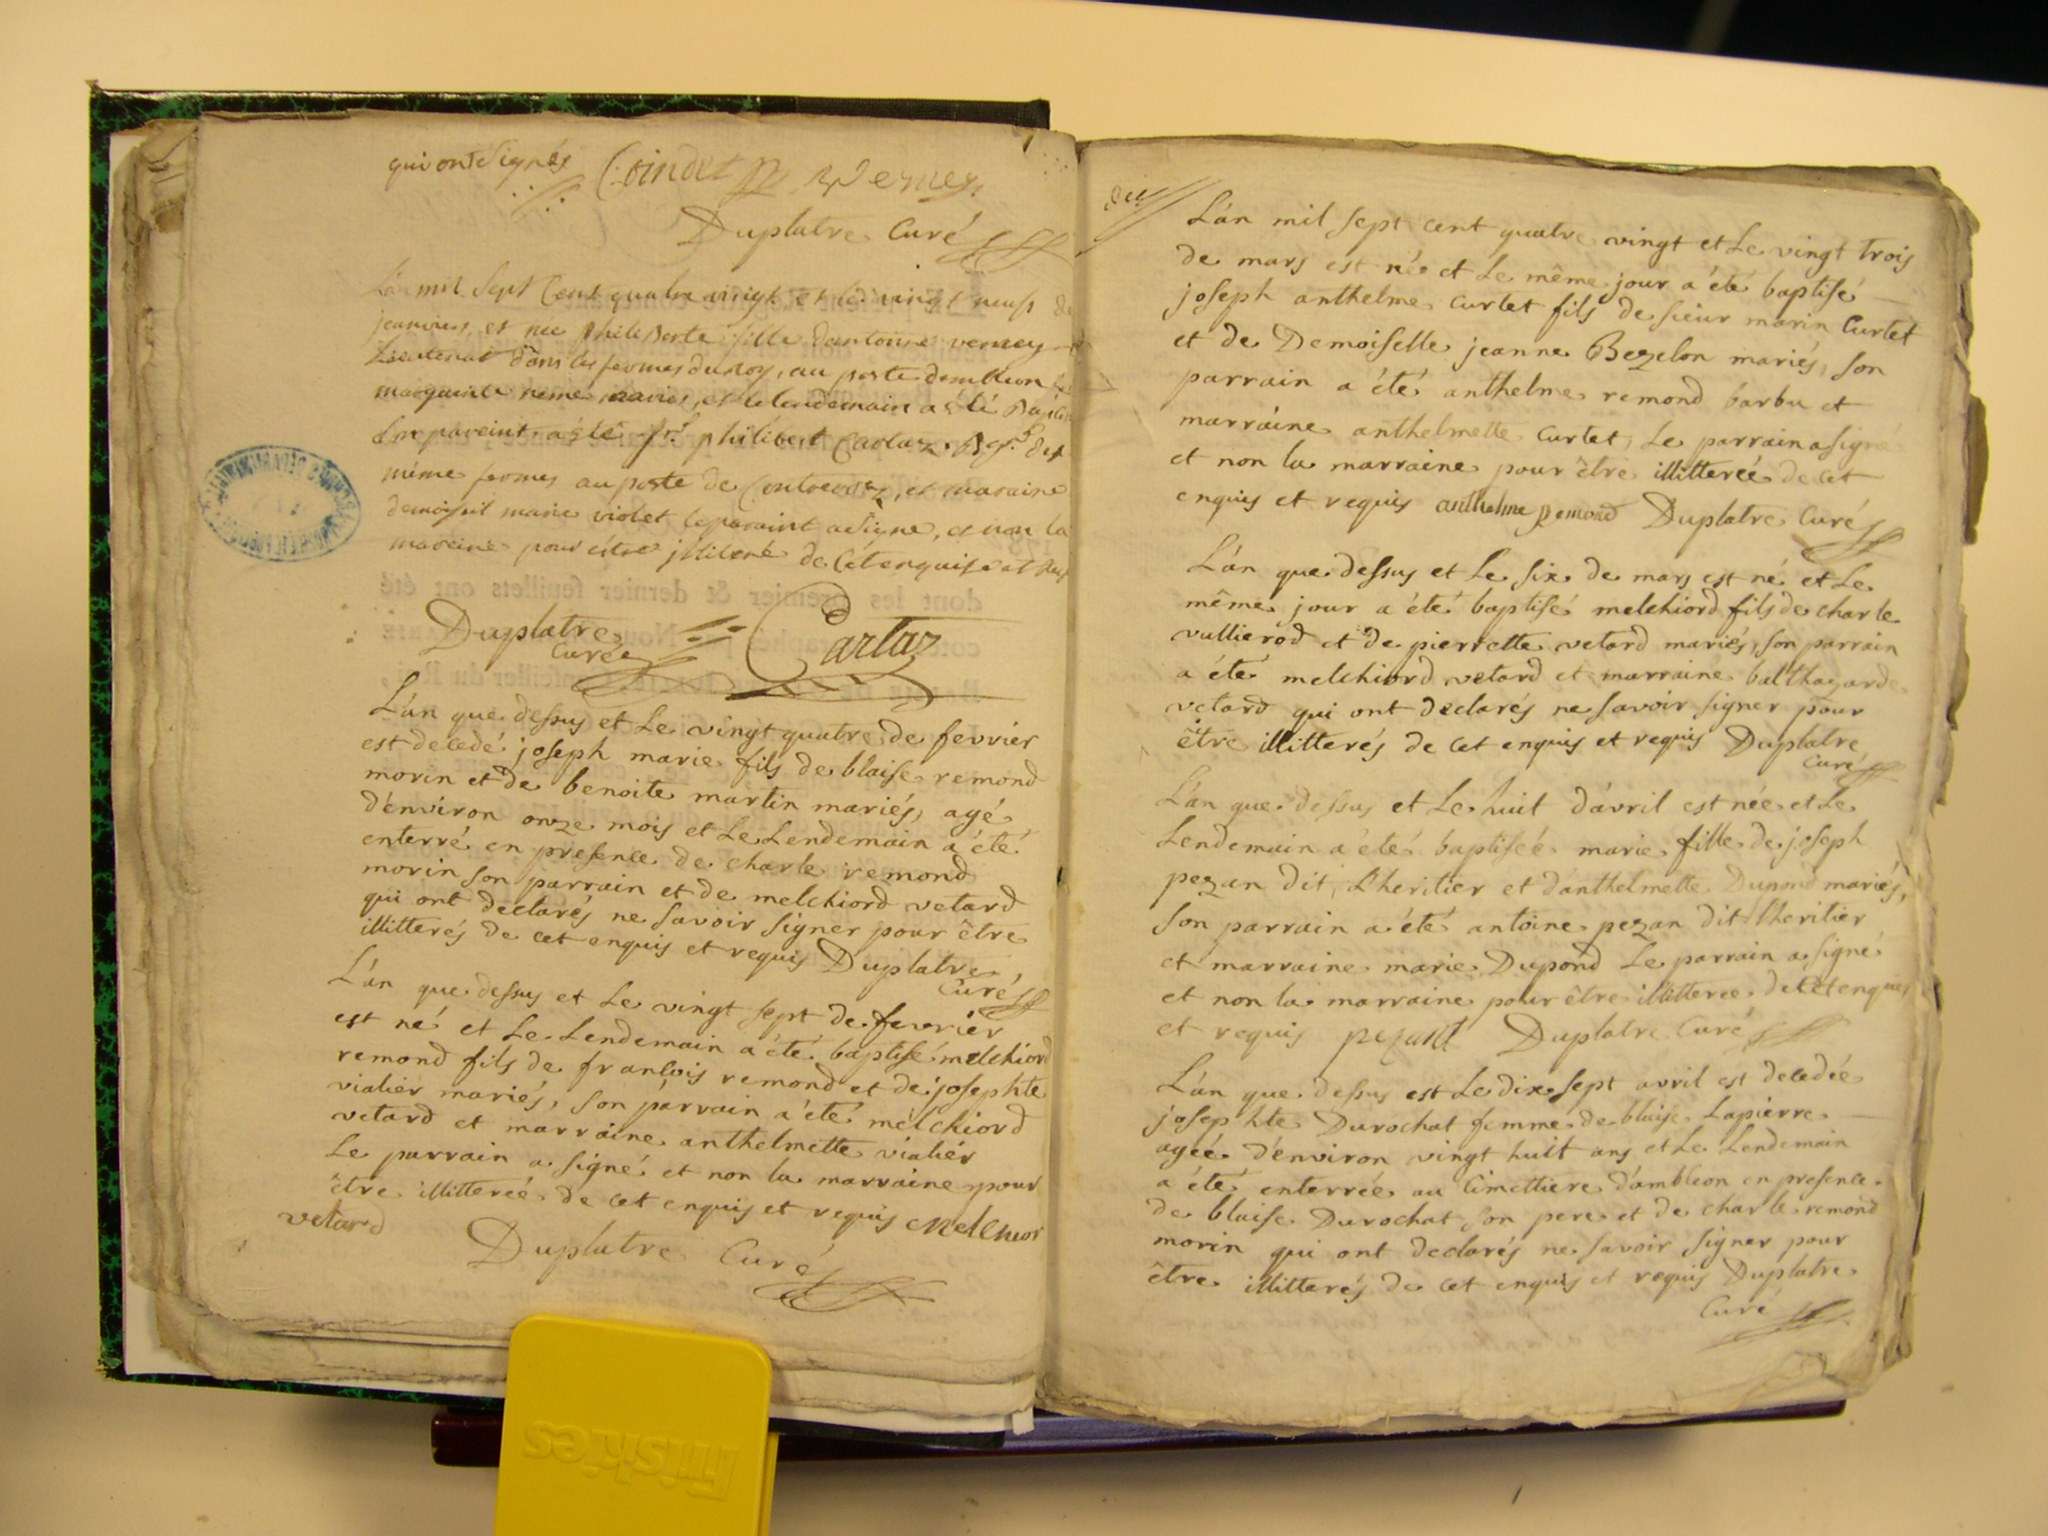 qui ont signés Coindet Verney
Duplatre Curé
L'an mil sept Cent quatre vingt et le vingt neuf de
janvier, est née philiberte fille d'antoine verney
Lieutenant dans les fermes du Roy, au poste d'ambleon
marguerite neme mariés, et le lendemain a été
Son pareint a été philibert Cartaz des
même fermes au poste de et maraine
demoiselle marie violet le paraint a signé, et non la
mareine pour être de cet enquise et
Duplatre Cartaz
Curé
L'an que dessus et Le vingt quatre de fevrier
est decedé joseph marie fils de blaise remond
morin et de benoite martin mariés, agé
d'environ onze mois et Le Lendemain a été
enterré en presence de charle remond
morin son parrain et de melchiord vetard
qui ont declarés ne savoir signer pour être
illitterés de cet enquis et requis Duplatre,
Curé
L'an que dessus et Le vingt sept de fevrier
est né et Le Lendemain a été baptisé melchiord
remond fils de francois remond et de josephte
vialier mariés, son parrain a été melchiord
vetard et marraine anthelmette vialiér
Le parrain a signé et non la marraine pour
être illitterée de cet enquis et requis Melchior
vetard
Duplatre Curé
L'an mil sept cent quatre vingt et Le vingt trois
de mars est née et Le même jour a été baptisé
joseph anthelme Curtet fils de sieur marin Curtet
et de Demoiselle jeanne Bezelon mariés, son
parrain a été anthelme remond barbu et
marraine anthelmette Curtet, Le parrain a signé
et non la marraine pour être illitterée de cet
enquis et requis anthelme remond Duplatre Curé
L'an que dessus et Le six de mars est né et Le
même jour a été baptisé melchiord fils de charle
vullierod et de pierrette vetard mariés, son parrain
a été melchiord vetard et marraine balthazarde
vetard qui ont declarés ne savoir signer pour
être illitterés de cet enquis et requis Duplatre
Curé
L'an que dessus et Le huit d'avril est née et Le
Lendemain a été baptisée marie fille de joseph
pezan dit L'heritier et d'anthelmette Dupond mariés,
son parrain a été antoine pezan dit L'heritier
et marraine marie Dupond Le parrain a signé
et non la marraine pour être illitteree de cet enques
et requis pezant Duplatre Curé
L'an que dessus est Le dix sept avril est decedée
josephte Durochat femme de blaise Lapierre
agée d'environ vingt huit ans et Le Lendemain
a été enterrée au Cimettiere d'ambleon en presence
de blaise Durochat son pere et de charle remond
morin qui ont declarés ne savoir signer pour
être illitterés de cet enquis et requis Duplatre
Curé